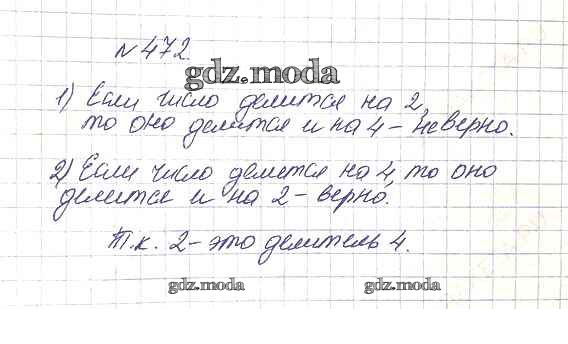 № 472.
gdz.moda
1) Если число делится на 2,
то оно делится и на 4 – неверно.
2) Если число делится на 4, то оно
делится и на 2 – верно.
Т.к. 2 – это делитель 4.
gdz.moda gdz.moda